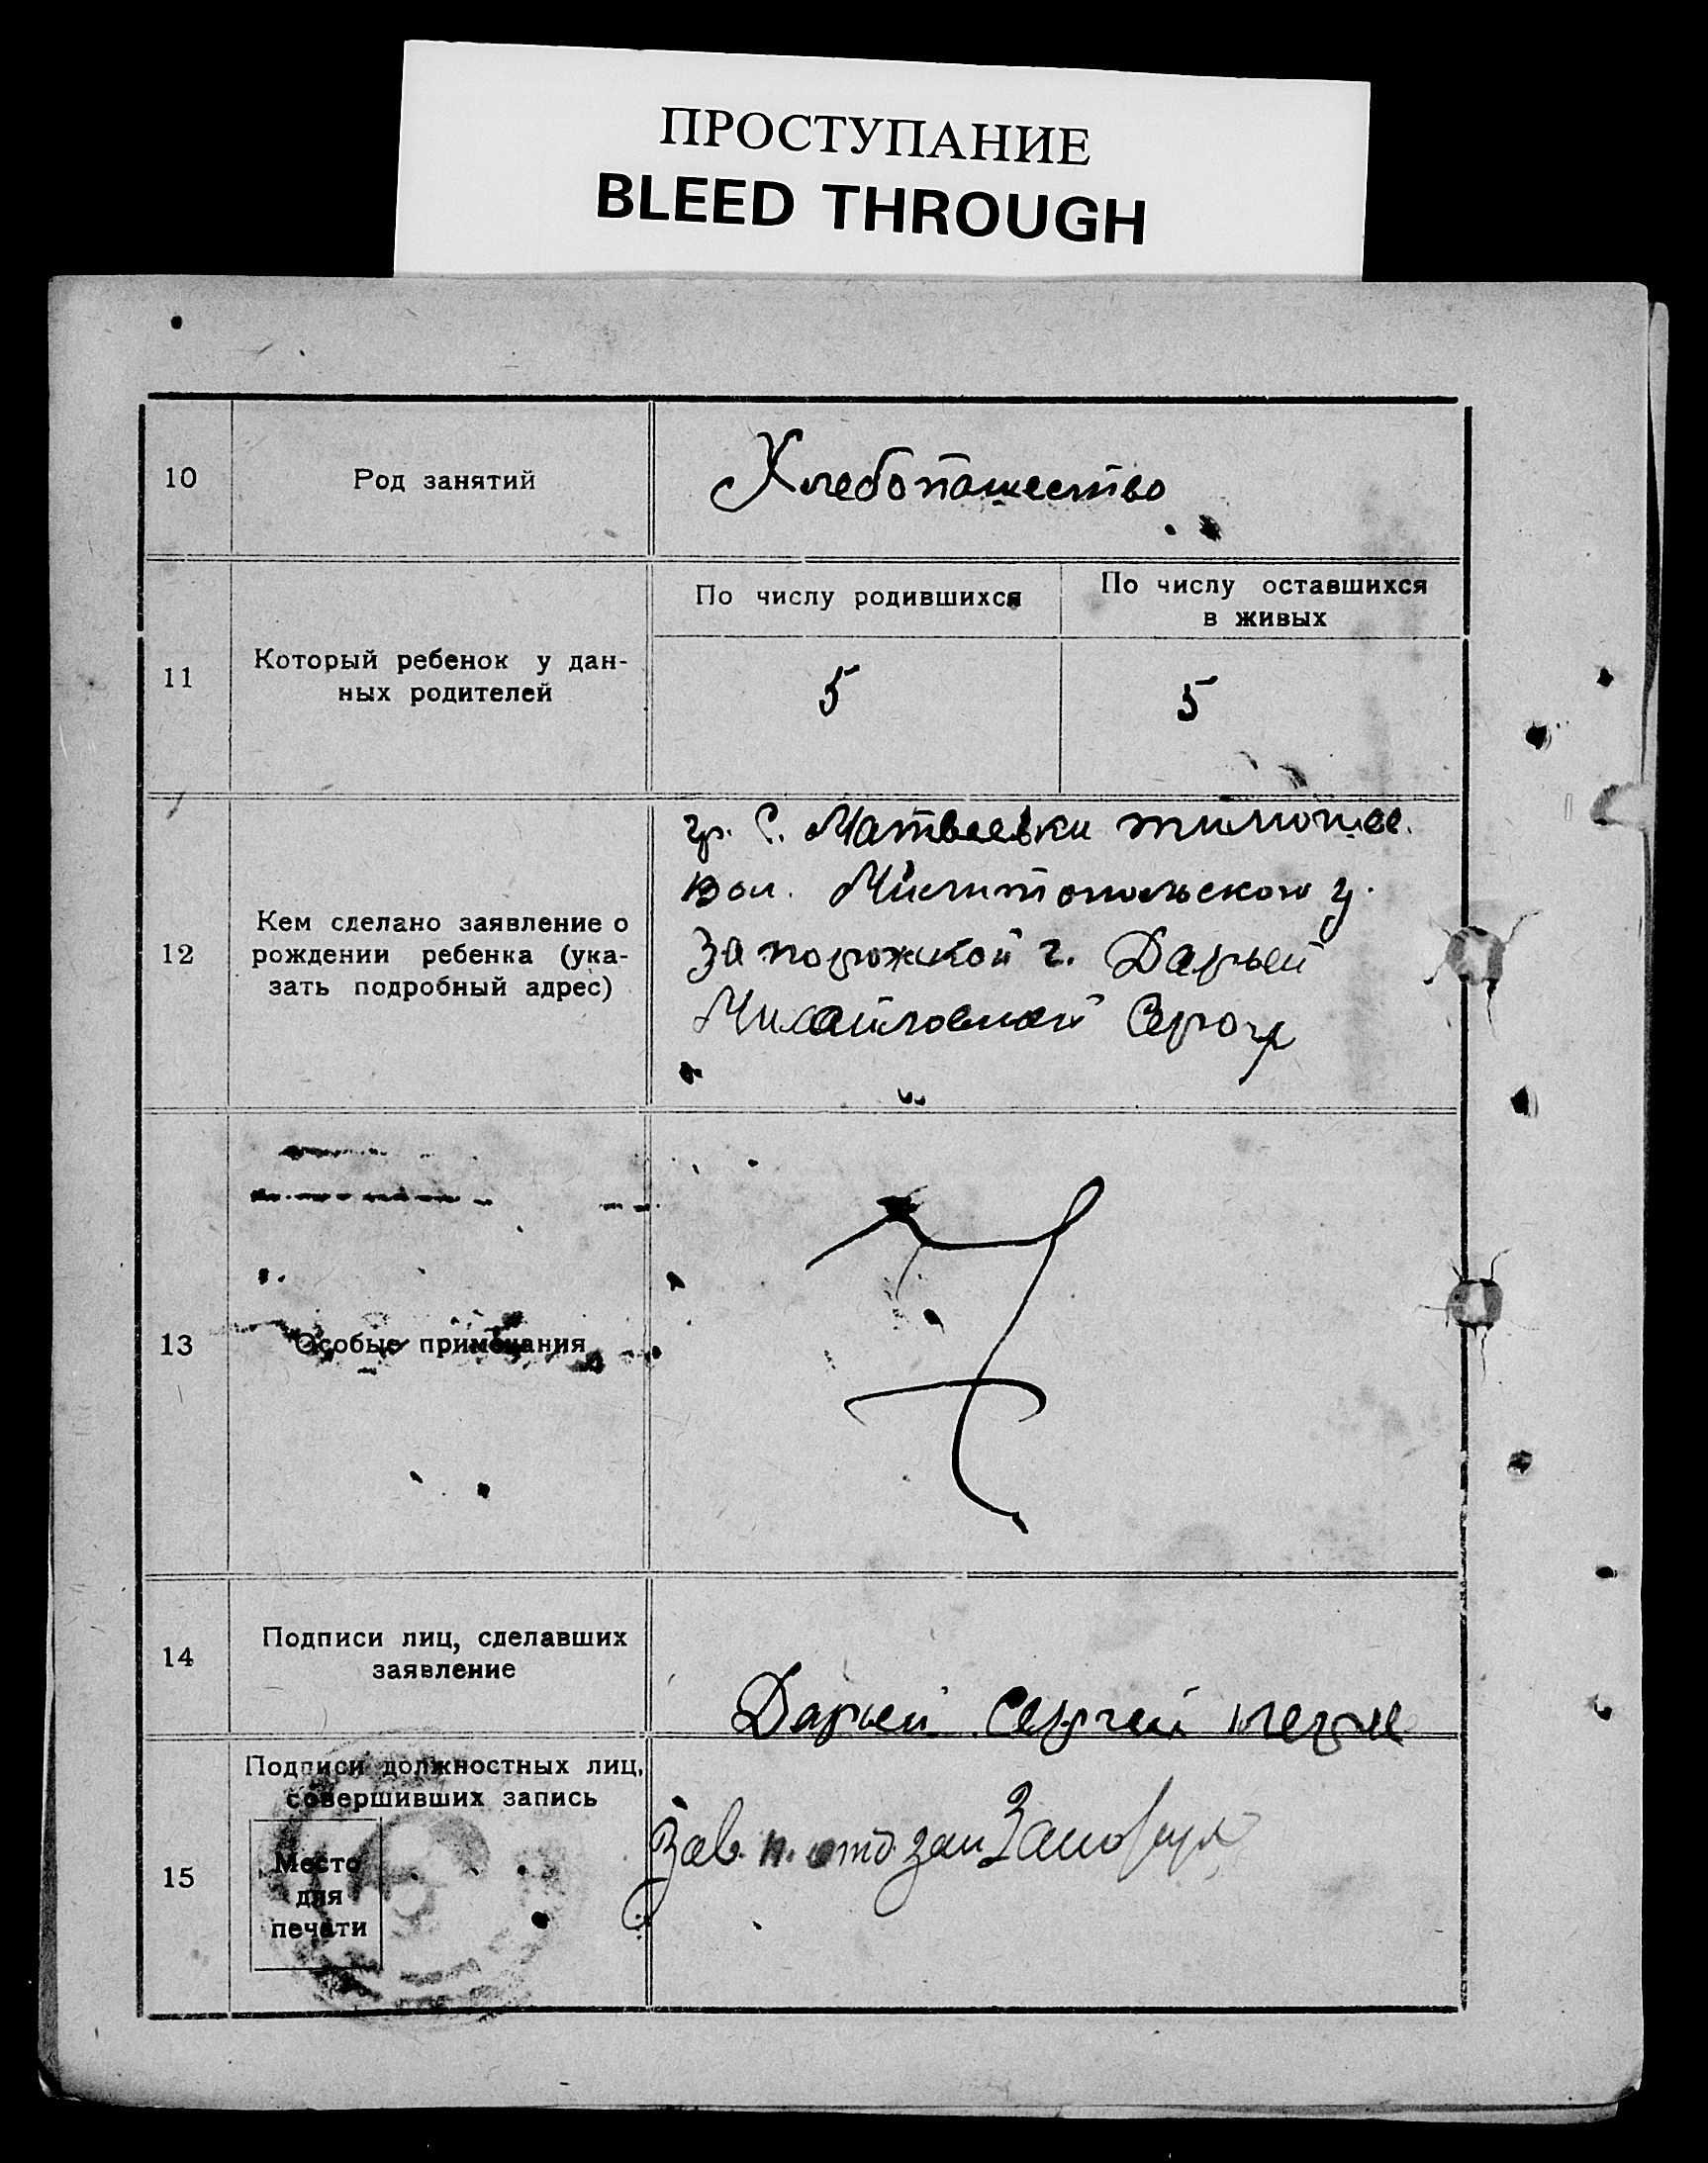 ПРОСТУПАНИЕ
BLEED THROUGH
10
Род занятий
Хлебопашество
11
Который ребенок у дан-
ных родителей
По числу родившихся
По числу оставшихся
в живых
5
5
12
Кем сделано заявление о
рождении ребенка (ука-
зать подробный адрес)
гр. С. Матвеевки
Вол. Милитопольского у.
Запорожской г. Дарьей
Михайловной
13
Особые примечания
14
Подписи лиц, сделавших
заявление
Дарьей
15
Подписи должностных лиц,
совершивших запись
Место
для
печати
Зав. п. отд зап